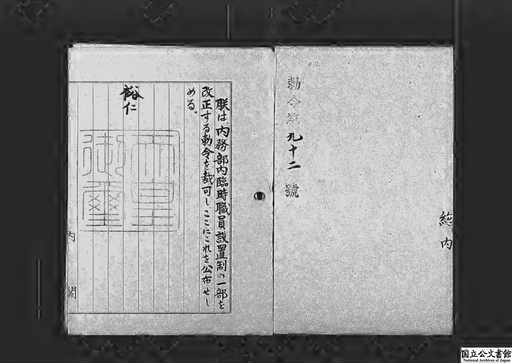 総内
勅令第九十二號
朕は、内務部内臨時職員設置制の一部を
改正する勅令を裁可し、ここにこれを公布せし
める。
裕仁
天皇
御璽
内閣
国立公文書館
National Archives of Japan